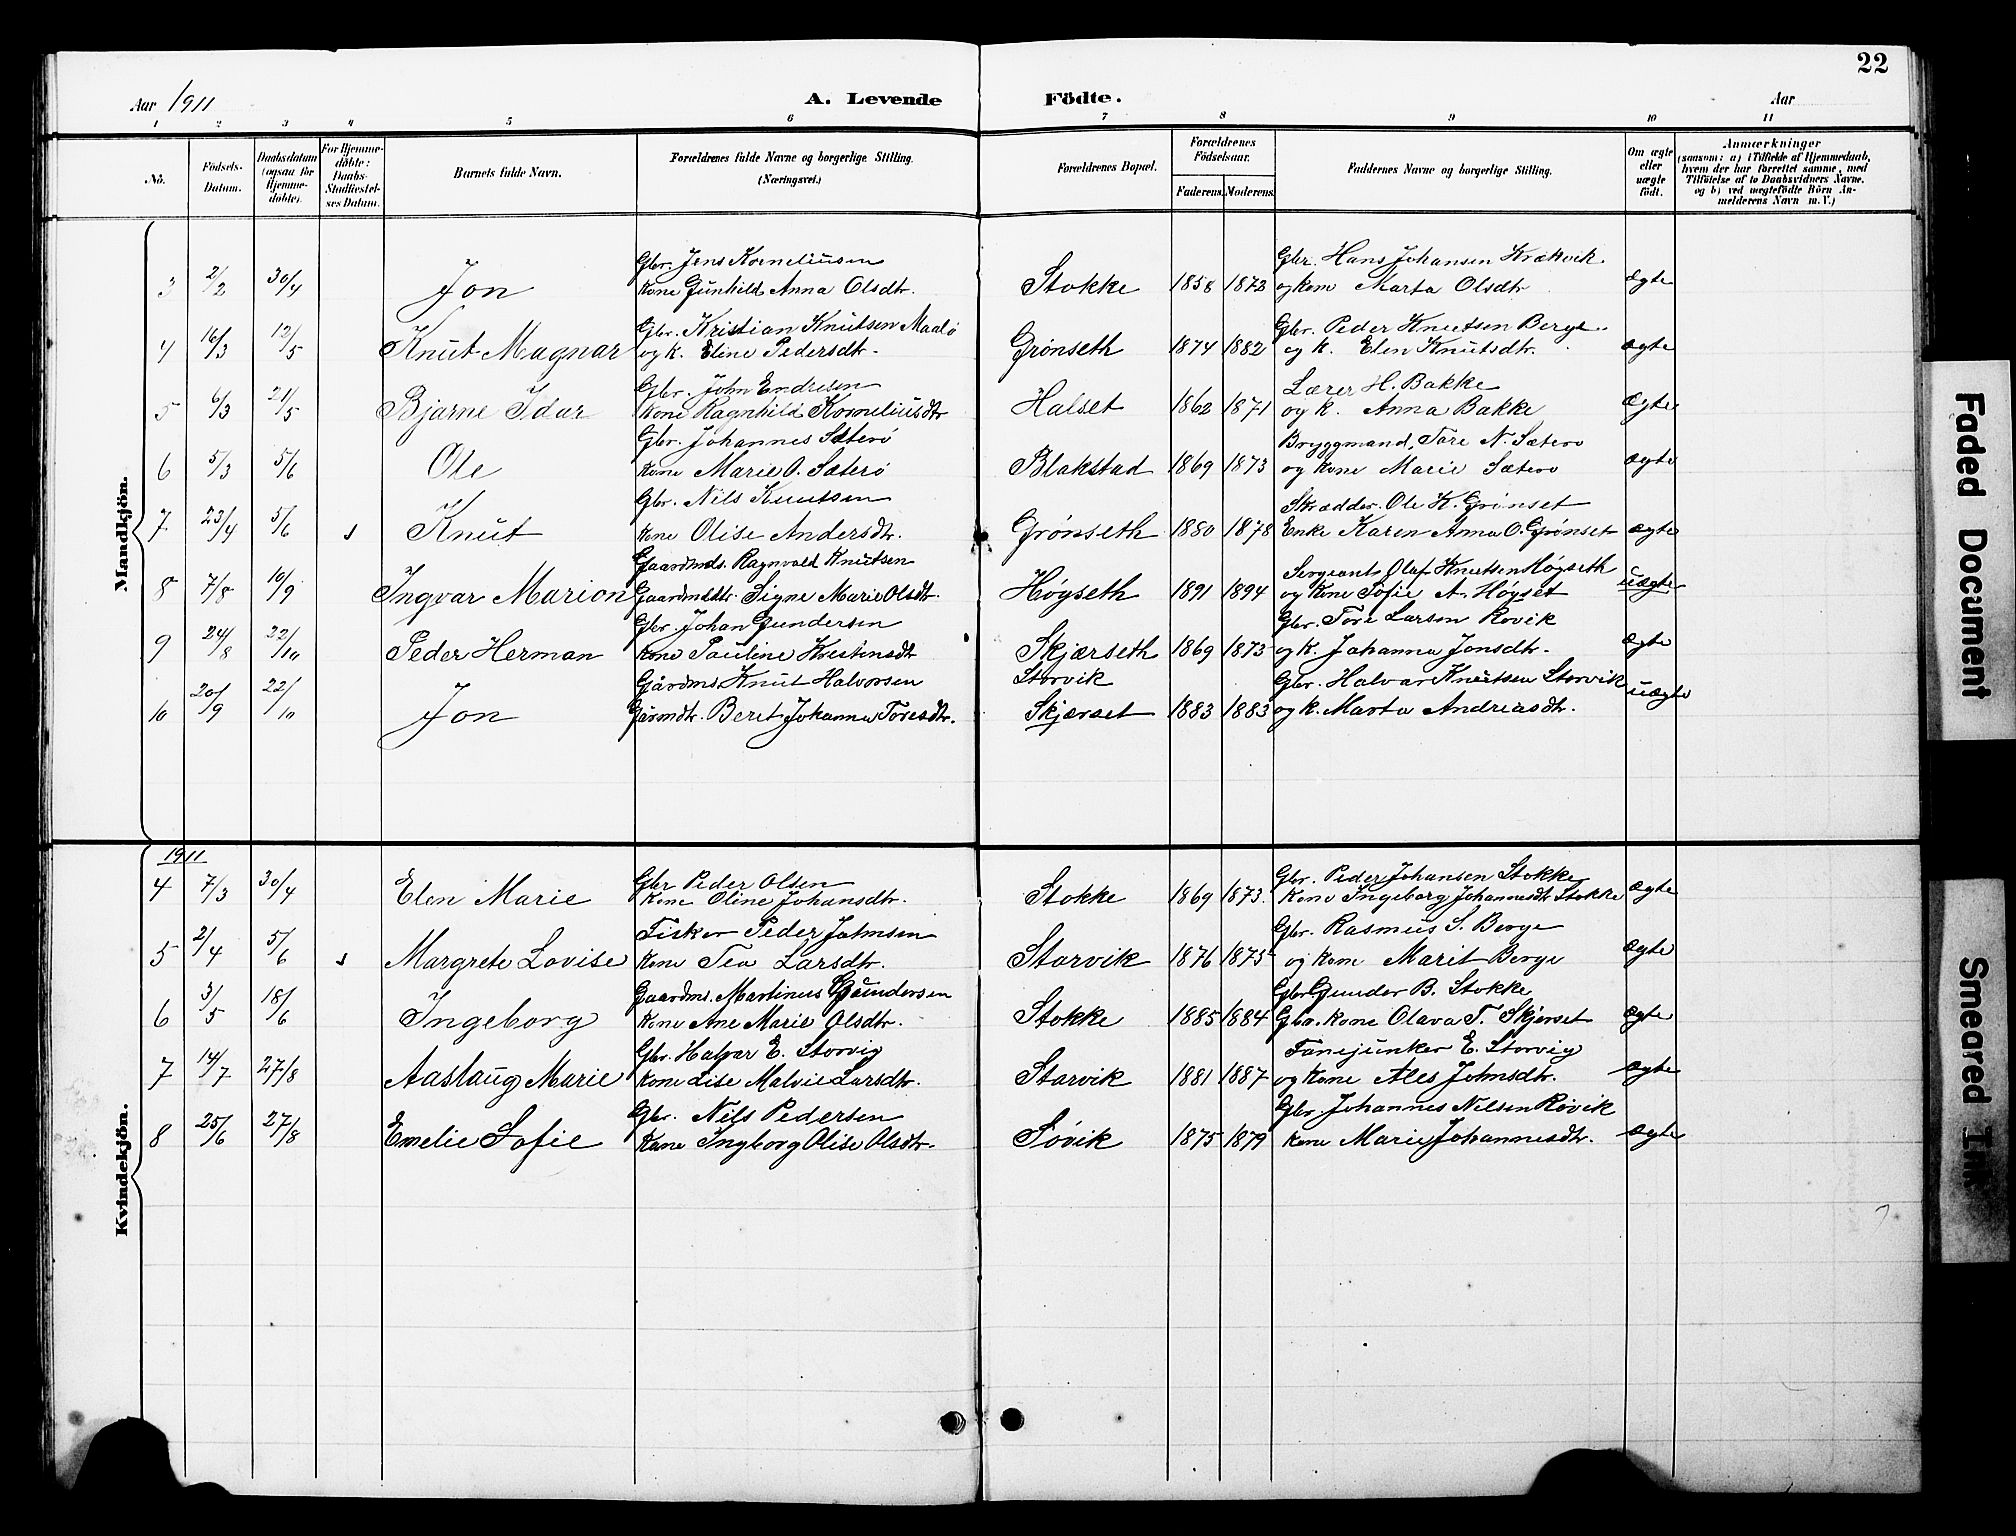 22
Aar 1911
A. Levende Födte.
Aar
1 2 3 4 5 6 7 8 9 10 11
No.
Födsels-Datum.
Daabsdatum (ogsaa for Hjemme-döbte).
For Hjemme-döbte: Daabs-Stadfæstel-ses Datum.
Barnets fulde Navn.
Forældrenes fulde Navne og borgerlige Stilling. (Næringsvei.)
Forældrenes Bopæl.
Forældrenes Födselsaar.
Faderens. Moderens.
Faddernes Navne og borgerlige Stilling.
Om ægte eller uægte födt.
Anmærkninger
(saasom: a) i Tilfælde af Hjemmedaab, hvem der har forrettet samme, med Tilföielse af to Daabsvidners Navne, og b) ved uægtefödte Börn An-melderens Navn m. V.)
Mandkjön.
Gbr. Jens Korneliüsen Gbr. Hans Johansen Krækvik.
3 2/2 30/4 Jon Kone Günhild Anna Olsdtr. Stokke 1858 1873 og kone Marta Olsdtr ægte
Gbr. Kristian Knütsen Maalö Gbr. Peder Knutsen Berge.
4 16/3 12/5 Knut Magnar og k. Eline Pedersdtr. Grönseth 1874 1882 og k. Elen Knütsdtr. ægte
Gbr. John Endresen Lærer H. Bakke
5 6/3 21/5 Bjarne Idar Kone Ragnhild Korneliusdtr Halset 1862 1871 og k. Anna Bakke Ægte
Gbr. Johannes Sæterö Bryggmand, Tore N. Sætero
6 5/3 5/6 Ole Kone Marie O. Sæterö Blakstad 1869 1873 og kone Marie Sætero ægte
Gbr. Nils Knutsen Skrædder. Ole K. Grönset
7 23/4 5/6 s Knüt Kone Olise Andersdtr. Grönseth 1880 1878 Enke Karen Anna O. Grönset ægte
Gaardmds. Ragnvald Knütsen Sergeant Olaf Knutsen Högseth
8 7/8 10/9 Ingvar Marion Gaardmdstr. Signe Marie Olsdtr. Högseth 1891 1894 og Kone Sofie A. Högset üægte
Gbr. Johan Gundersen Gbr. Tore Larsen Rövik
9 24/8 22/10 Peder Herman Kone Pauline Kristensdtr Skjærseth 1869 1873 og k. Johanna Jonsdtr. ægte
Gårdms. Knüt Halvorsen Storvik Gbr. Halvar Knütsen Storvik
10 20/9 22/10 Jon Gårmdtr. Beret Johanna Toresdtr. Skjærset 1883 1883 og k. Marta Andreasdtr. üægte
Kvindekjön.
1911
Gbr Peder Olsen Gbr. Peder Johansen Stokke
4 7/3 30/4 Elen Marie Kone Oline Johansdtr. Stokke 1869 1873. Kone Ingeborg Johannesdtr Stokke ægte
Fisker Peder Johnsen Gbr. Rasmus S. Berge
5 2/4 5/6 s Margrete Lovise Kone Tea Larsdtr. Storvik 1876 1875 og kone Marit Berge ægte
Gaardms. Martinus Gündersen Gbr Gunder B. Stokke
6 3/5 18/6 Ingeborg Kone Ane Marie Olsdtr. Stokke 1885 1884 Gbr. kone Olava T. Skjerset ægte
Gbr. Halvar E. Storvig Fanejunker E. Storvig
7 14/7 27/8 Aaslaug Marie Kone Lise Malvie Larsdtr. Storvik 1881 1887 og kone Ales Johnsdtr. ægte
Gbr. Nils Pedersen Gbr Johannes Nilsen Rövik
8 25/6 27/8 Emelie Sofie Kone Ingborg Olise Olsdtr. Sövik 1875 1879 Kone Marie Johannesdtr. ægte
Faded Document
Smeared Ink